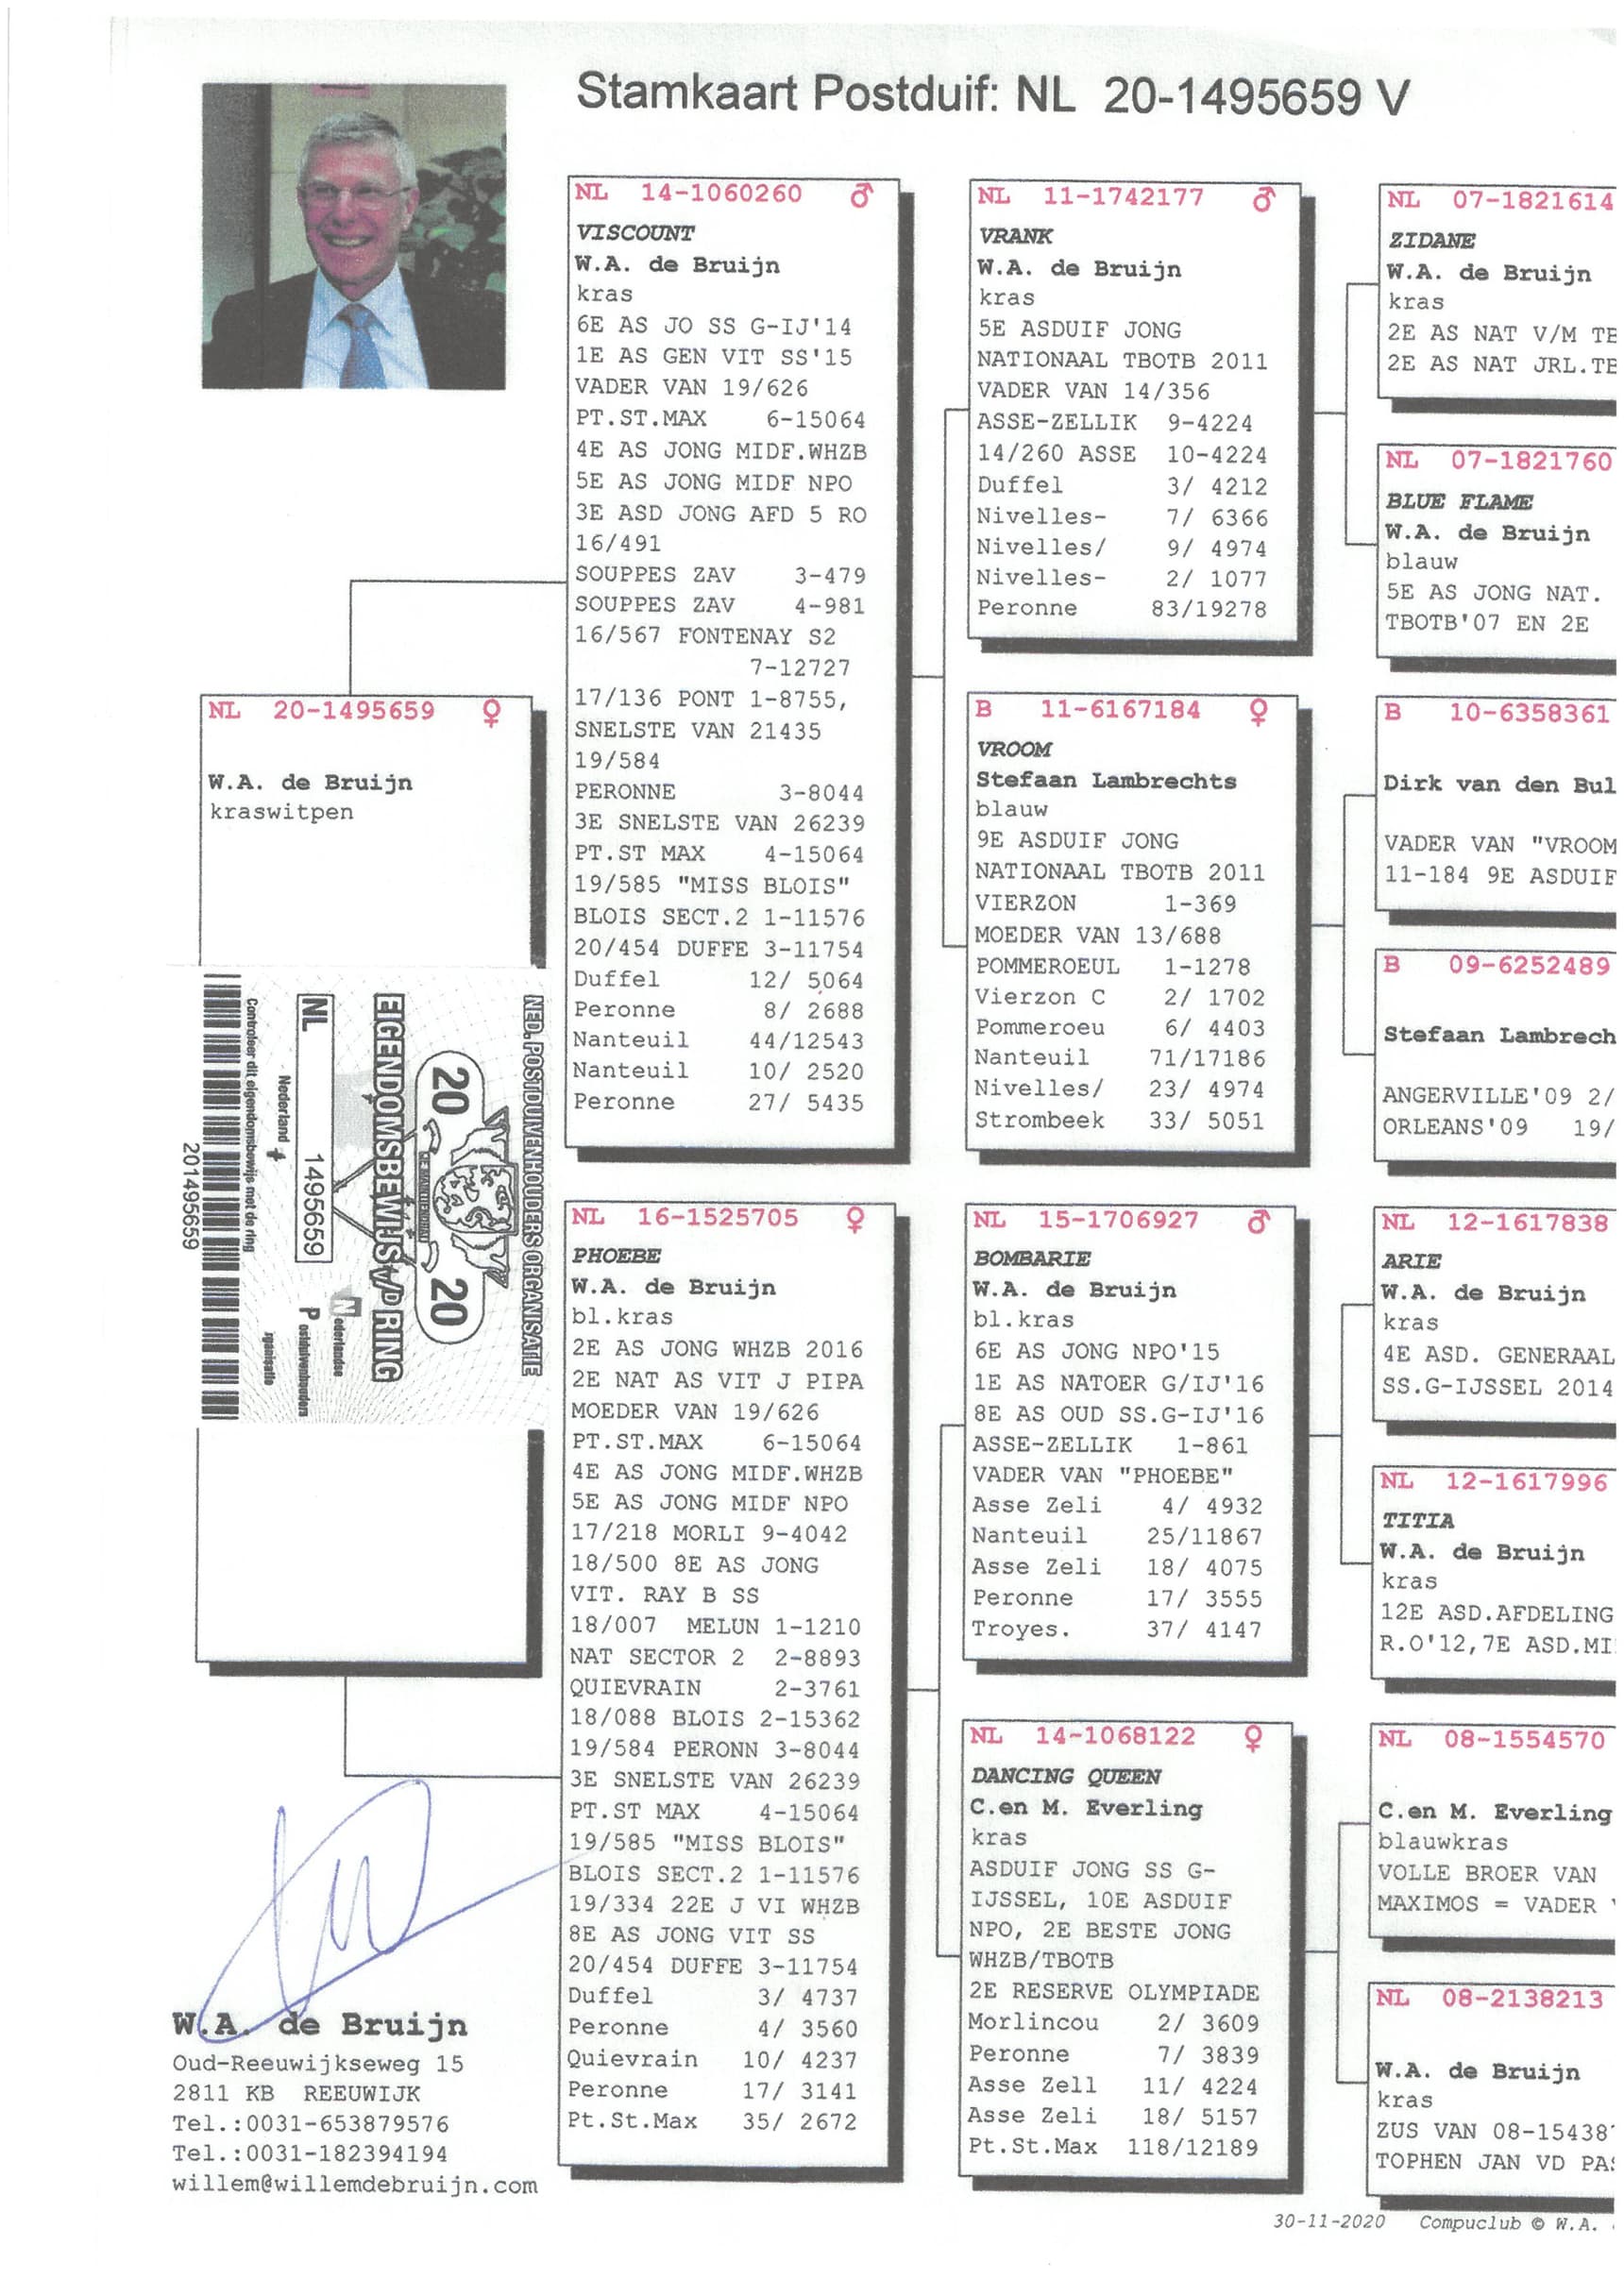 Stamkaart Postduif: NL 20-1495659 V
NL 20-1495659 ♀
W.A. de Bruijn
kraswitpen
NED. POSTDUIVENHOUDERS ORGANISATIE
20 20
EIGENDOMSBEWIJS v/D RING
NL 1495659
Nederlandse
Postduivenhouders
Organisatie
Nederland
Controleer dit eigendomsbewijs met de ring
201495659
W.A. de Bruijn
Oud-Reeuwijkseweg 15
2811 KB REEUWIJK
Tel.:0031-653879576
Tel.:0031-182394194
willem@willemdebruijn.com
NL 14-1060260 ♂
VISCOUNT
W.A. de Bruijn
kras
6E AS JO SS G-IJ'14
1E AS GEN VIT SS'15
VADER VAN 19/626
PT.ST.MAX 6-15064
4E AS JONG MIDF.WHZB
5E AS JONG MIDF NPO
3E ASD JONG AFD 5 RO
16/491
SOUPPES ZAV 3-479
SOUPPES ZAV 4-981
16/567 FONTENAY S2
7-12727
17/136 PONT 1-8755,
SNELSTE VAN 21435
19/584
PERONNE 3-8044
3E SNELSTE VAN 26239
PT.ST MAX 4-15064
19/585 "MISS BLOIS"
BLOIS SECT.2 1-11576
20/454 DUFFE 3-11754
Duffel 12/ 5064
Peronne 8/ 2688
Nanteuil 44/12543
Nanteuil 10/ 2520
Peronne 27/ 5435
NL 16-1525705 ♀
PHOEBE
W.A. de Bruijn
bl.kras
2E AS JONG WHZB 2016
2E NAT AS VIT J PIPA
MOEDER VAN 19/626
PT.ST.MAX 6-15064
4E AS JONG MIDF.WHZB
5E AS JONG MIDF NPO
17/218 MORLI 9-4042
18/500 8E AS JONG
VIT. RAY B SS
18/007 MELUN 1-1210
NAT SECTOR 2 2-8893
QUIEVRAIN 2-3761
18/088 BLOIS 2-15362
19/584 PERONN 3-8044
3E SNELSTE VAN 26239
PT.ST MAX 4-15064
19/585 "MISS BLOIS"
BLOIS SECT.2 1-11576
19/334 22E J VI WHZB
8E AS JONG VIT SS
20/454 DUFFE 3-11754
Duffel 3/ 4737
Peronne 4/ 3560
Quievrain 10/ 4237
Peronne 17/ 3141
Pt.St.Max 35/ 2672
NL 11-1742177 ♂
VRANK
W.A. de Bruijn
kras
5E ASDUIF JONG
NATIONAAL TBOTB 2011
VADER VAN 14/356
ASSE-ZELLIK 9-4224
14/260 ASSE 10-4224
Duffel 3/ 4212
Nivelles- 7/ 6366
Nivelles/ 9/ 4974
Nivelles- 2/ 1077
Peronne 83/19278
B 11-6167184 ♀
VROOM
Stefaan Lambrechts
blauw
9E ASDUIF JONG
NATIONAAL TBOTB 2011
VIERZON 1-369
MOEDER VAN 13/688
POMMEROEUL 1-1278
Vierzon C 2/ 1702
Pommeroeu 6/ 4403
Nanteuil 71/17186
Nivelles/ 23/ 4974
Strombeek 33/ 5051
NL 15-1706927 ♂
BOMBARIE
W.A. de Bruijn
bl.kras
6E AS JONG NPO'15
1E AS NATOER G/IJ'16
8E AS OUD SS.G-IJ'16
ASSE-ZELLIK 1-861
VADER VAN "PHOEBE"
Asse Zeli 4/ 4932
Nanteuil 25/11867
Asse Zeli 18/ 4075
Peronne 17/ 3555
Troyes. 37/ 4147
NL 14-1068122 ♀
DANCING QUEEN
C.en M. Everling
kras
ASDUIF JONG SS G-
IJSSEL, 10E ASDUIF
NPO, 2E BESTE JONG
WHZB/TBOTB
2E RESERVE OLYMPIADE
Morlincou 2/ 3609
Peronne 7/ 3839
Asse Zell 11/ 4224
Asse Zeli 18/ 5157
Pt.St.Max 118/12189
NL 07-1821614
ZIDANE
W.A. de Bruijn
kras
2E AS NAT V/M TE
2E AS NAT JRL.TE
NL 07-1821760
BLUE FLAME
W.A. de Bruijn
blauw
5E AS JONG NAT.
TBOTB'07 EN 2E
B 10-6358361
Dirk van den Bul
VADER VAN "VROOM
11-184 9E ASDUIF
B 09-6252489
Stefaan Lambrech
ANGERVILLE'09 2/
ORLEANS'09 19/
NL 12-1617838
ARIE
W.A. de Bruijn
kras
4E ASD. GENERAAL
SS.G-IJSSEL 2014
NL 12-1617996
TITIA
W.A. de Bruijn
kras
12E ASD.AFDELING
R.O'12,7E ASD.MI
NL 08-1554570
C.en M. Everling
blauwkras
VOLLE BROER VAN
MAXIMOS = VADER
NL 08-2138213
W.A. de Bruijn
kras
ZUS VAN 08-15438
TOPHEN JAN VD PA
30-11-2020 Compuclub © W.A.